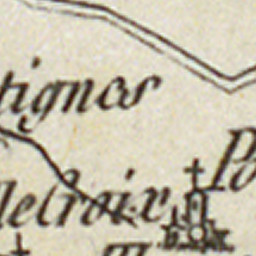 tignes
Po
lecroix